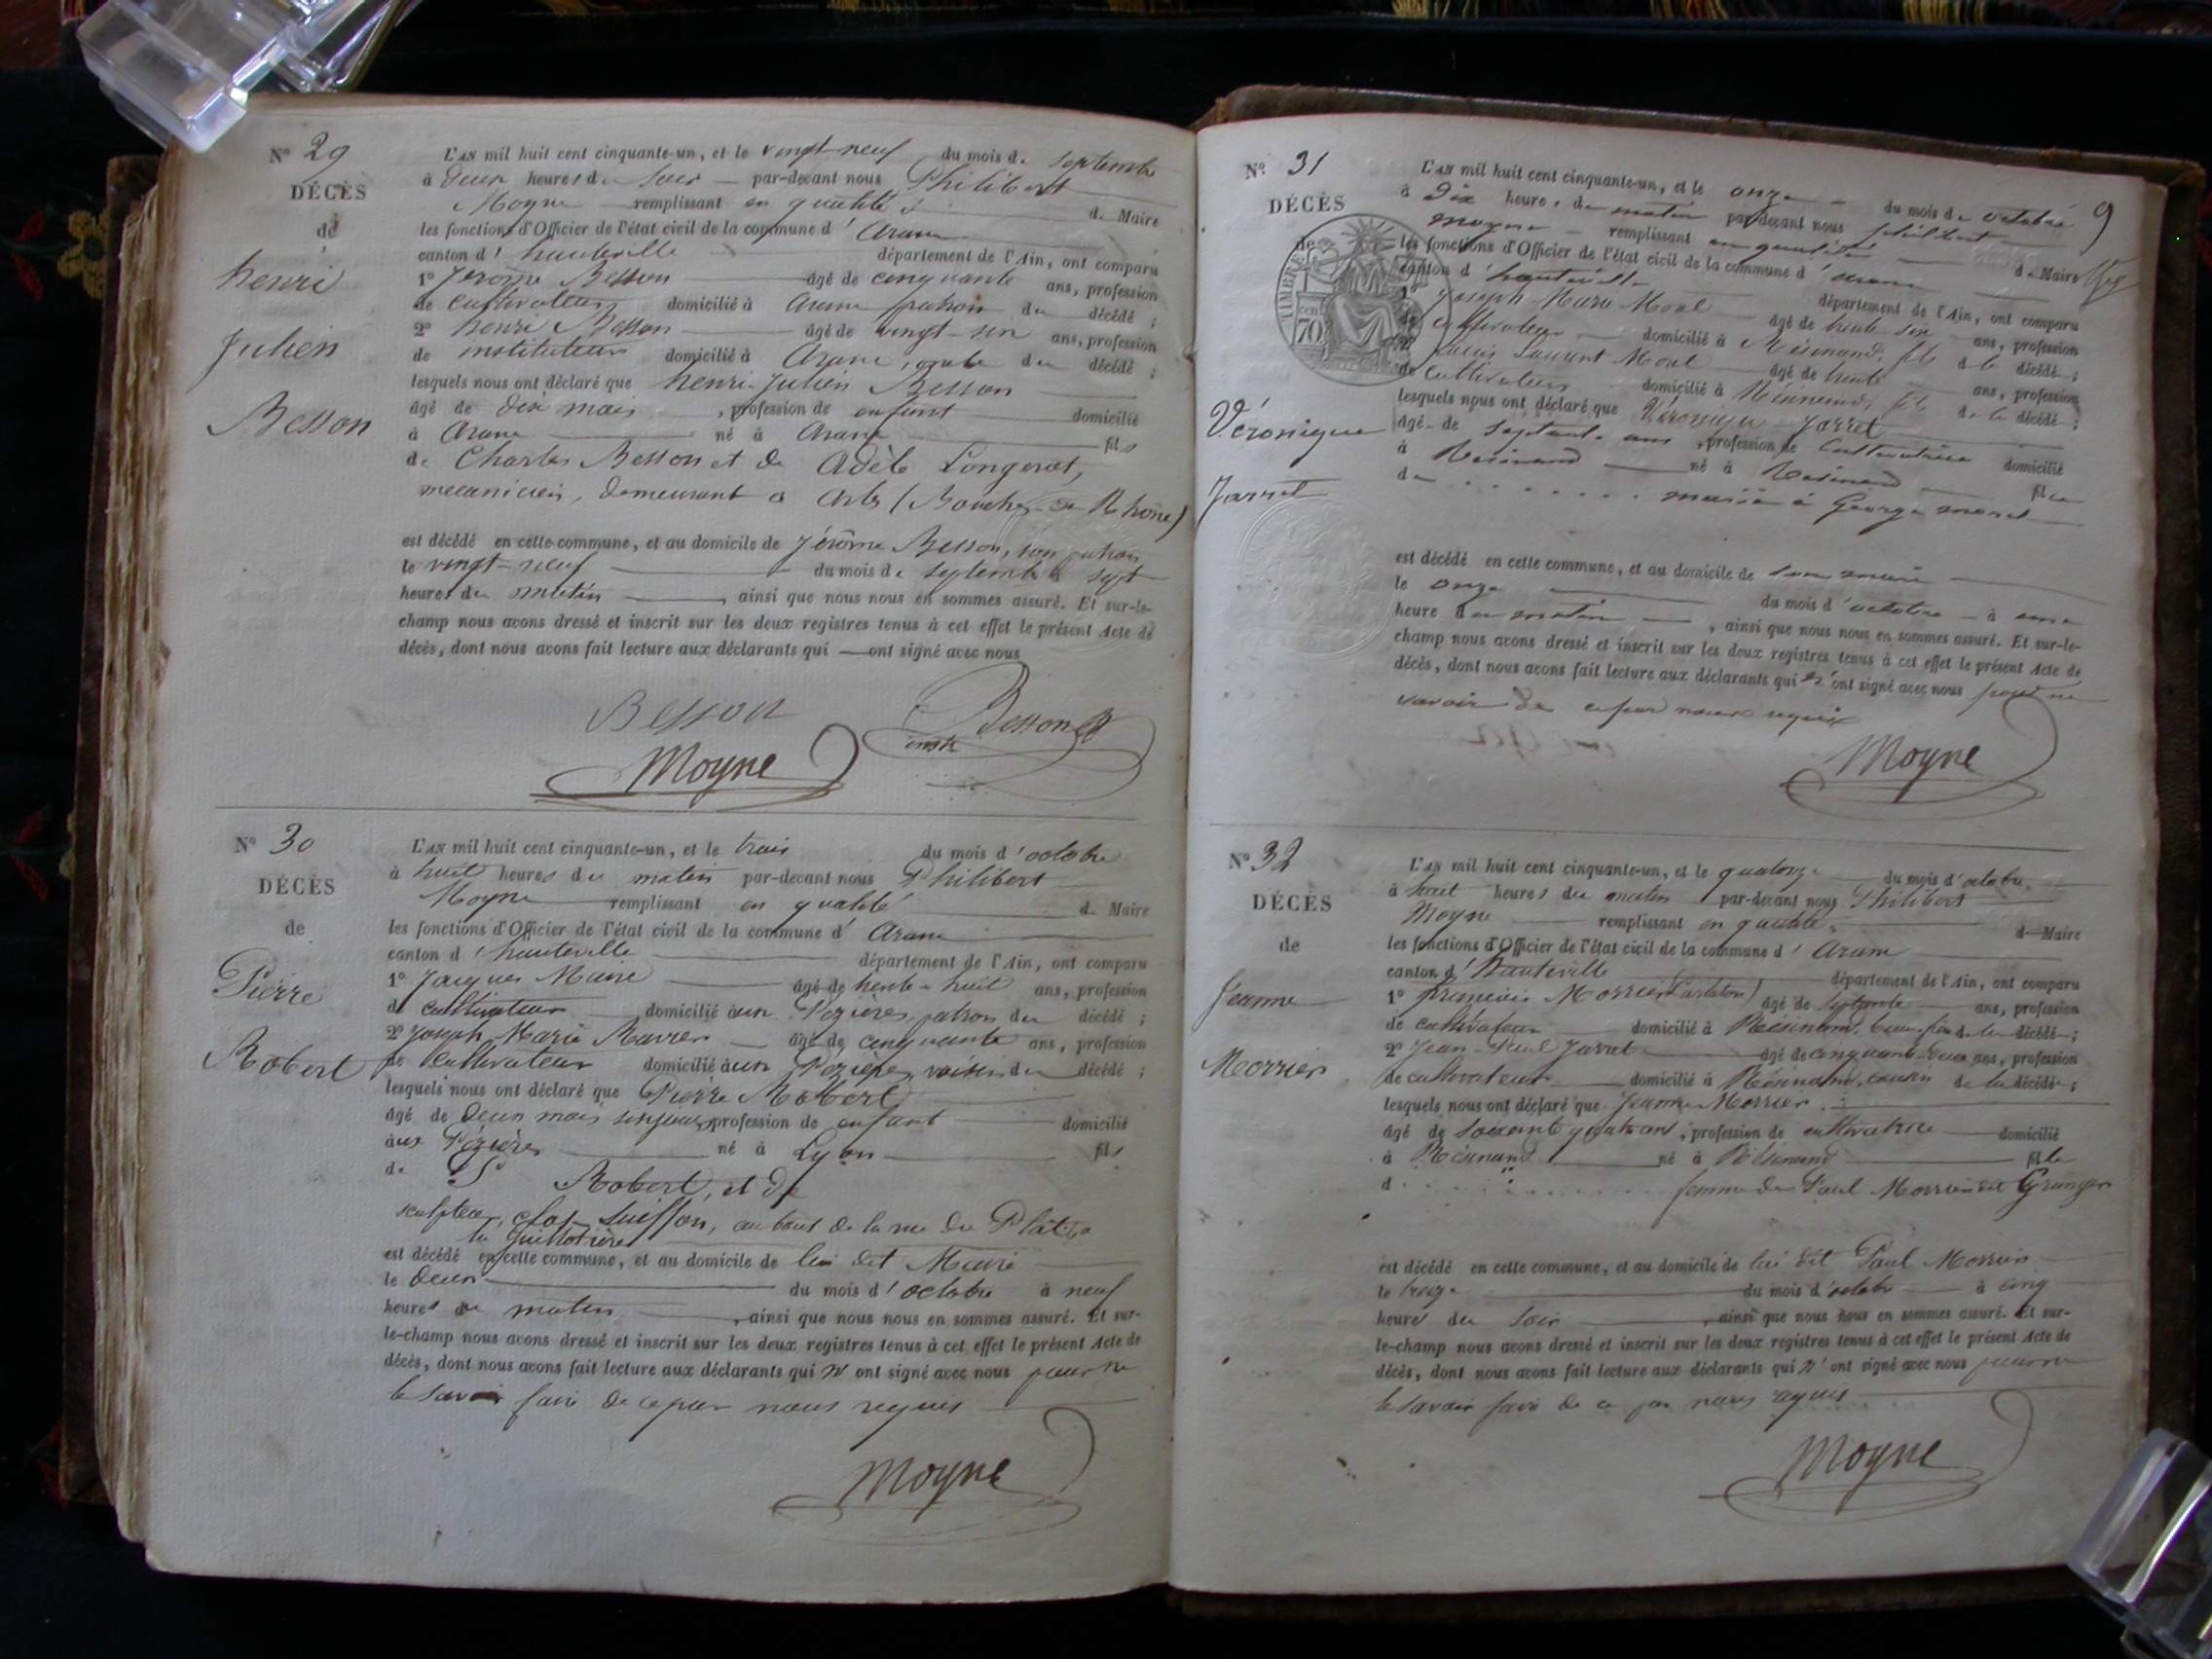 Nº 29
DÉCÈS
de
henri
Julien
Besson
L'AN mil huit cent cinquante-un, et le vingt-neuf du mois de septembre
à deux heures du soir par-devant nous Philibert
Moyne remplissant en qualité de Maire
les fonctions d'Officier de l'état civil de la commune d'Aranc
canton d'hauteville département de l'Ain, ont comparu
1º Jérôme Besson âgé de cinquante ans, profession
de cultivateur domicilié à Aranc patron du décédé ;
2º henri Besson âgé de vingt-six ans, profession
de instituteur domicilié à Aranc, oncle du décédé ;
lesquels nous ont déclaré que henri Julien Besson
âgé de dix mois, profession de enfant domicilié
à Aranc né à Aranc fils
de Charles Besson et de Adèle Longerat,
mécanicien, demeurant à Arles (Bouches du Rhône)
est décédé en cette commune, et au domicile de Jérôme Besson, son patron
le vingt-neuf du mois de septembre à sept
heures du matin, ainsi que nous nous en sommes assuré. Et sur-le-
champ nous avons dressé et inscrit sur les deux registres tenus à cet effet le présent Acte de
décès, dont nous avons fait lecture aux déclarants qui ont signé avec nous
Besson
Besson
Moyne
Nº 30
DÉCÈS
de
Pierre
Robert
L'AN mil huit cent cinquante-un, et le trois du mois d'octobre
à huit heures du matin par-devant nous Philibert
Moyne remplissant en qualité de Maire
les fonctions d'Officier de l'état civil de la commune d'Aranc
canton d'hauteville département de l'Ain, ont comparu
1º Jacques Maire âgé de trente-huit ans, profession
de cultivateur domicilié aux Pézières, patron du décédé ;
2º Joseph Marie âgé de cinquante ans, profession
de cultivateur domicilié aux Pézières, voisin du décédé ;
lesquels nous ont déclaré que Pierre Robert
âgé de deux mois six jours, profession de enfant domicilié
aux Pézières né à Lyon fils
de S Robert, et de
sculpteur, clos Suiffon, au bout de la rue du Plâtre
la Guillotière
est décédé en cette commune, et au domicile de lui dit Maire
le deux du mois d'octobre à neuf
heures du matin, ainsi que nous nous en sommes assuré. Et sur-
le-champ nous avons dressé et inscrit sur les deux registres tenus à cet effet le présent Acte de
décès, dont nous avons fait lecture aux déclarants qui n'ont signé avec nous pour ne
le savoir faire de ce par nous requis
Moyne
9
Nº 31
DÉCÈS
de
TIMBRE
70
Véronique
Jarret
L'AN mil huit cent cinquante-un, et le onze du mois de octobre
à dix heures du matin par-devant nous philibert
moyne remplissant en qualité de Maire
les fonctions d'Officier de l'état civil de la commune d'aranc
canton d'hauteville département de l'Ain, ont comparu
1º Joseph Marie Morel âgé de trente six ans, profession
de cultivateur domicilié à Résinand, fils de la décédée ;
2º Louis Laurent Morel âgé de trente ans, profession
de cultivateur domicilié à Résinand, fils de la décédée ;
lesquels nous ont déclaré que Véronique Jarret
âgé de septante ans, profession de cultivatrice domicilié
à Résinand né à Résinand fille
de . . . . . . . . mariée à George morel
est décédé en cette commune, et au domicile de son mari
le onze du mois d'octobre à une
heure du matin, ainsi que nous nous en sommes assuré. Et sur-le-
champ nous avons dressé et inscrit sur les deux registres tenus à cet effet le présent Acte de
décès, dont nous avons fait lecture aux déclarants qui n'ont signé avec nous pour ne
savoir de ce par nous requis
Moyne
Nº 32
DÉCÈS
de
Jeanne
Morrier
L'AN mil huit cent cinquante-un, et le quatorze du mois d'octobre
à huit heures du matin par-devant nous Philibert
Moyne remplissant en qualité de Maire
les fonctions d'Officier de l'état civil de la commune d'Aranc
canton d'Hauteville département de l'Ain, ont comparu
1º françois Morrier âgé de septante ans, profession
de cultivateur domicilié à Résinand, beau-frère de la décédée ;
2º Jean-Paul Jarret âgé de cinquante-deux ans, profession
de cultivateur domicilié à Résinand, cousin de la décédée ;
lesquels nous ont déclaré que Jeanne Morrier
âgé de soixante quatre ans, profession de cultivatrice domicilié
à Résinand né à Résinand fille
d . . . . . . . . femme de Paul Morrier dit Granger
est décédé en cette commune, et au domicile de lui dit Paul Morrier
le treize du mois d'octobre à cinq
heures du soir, ainsi que nous nous en sommes assuré. Et sur-
le-champ nous avons dressé et inscrit sur les deux registres tenus à cet effet le présent Acte de
décès, dont nous avons fait lecture aux déclarants qui n'ont signé avec nous pour ne
le savoir faire de ce par nous requis
Moyne